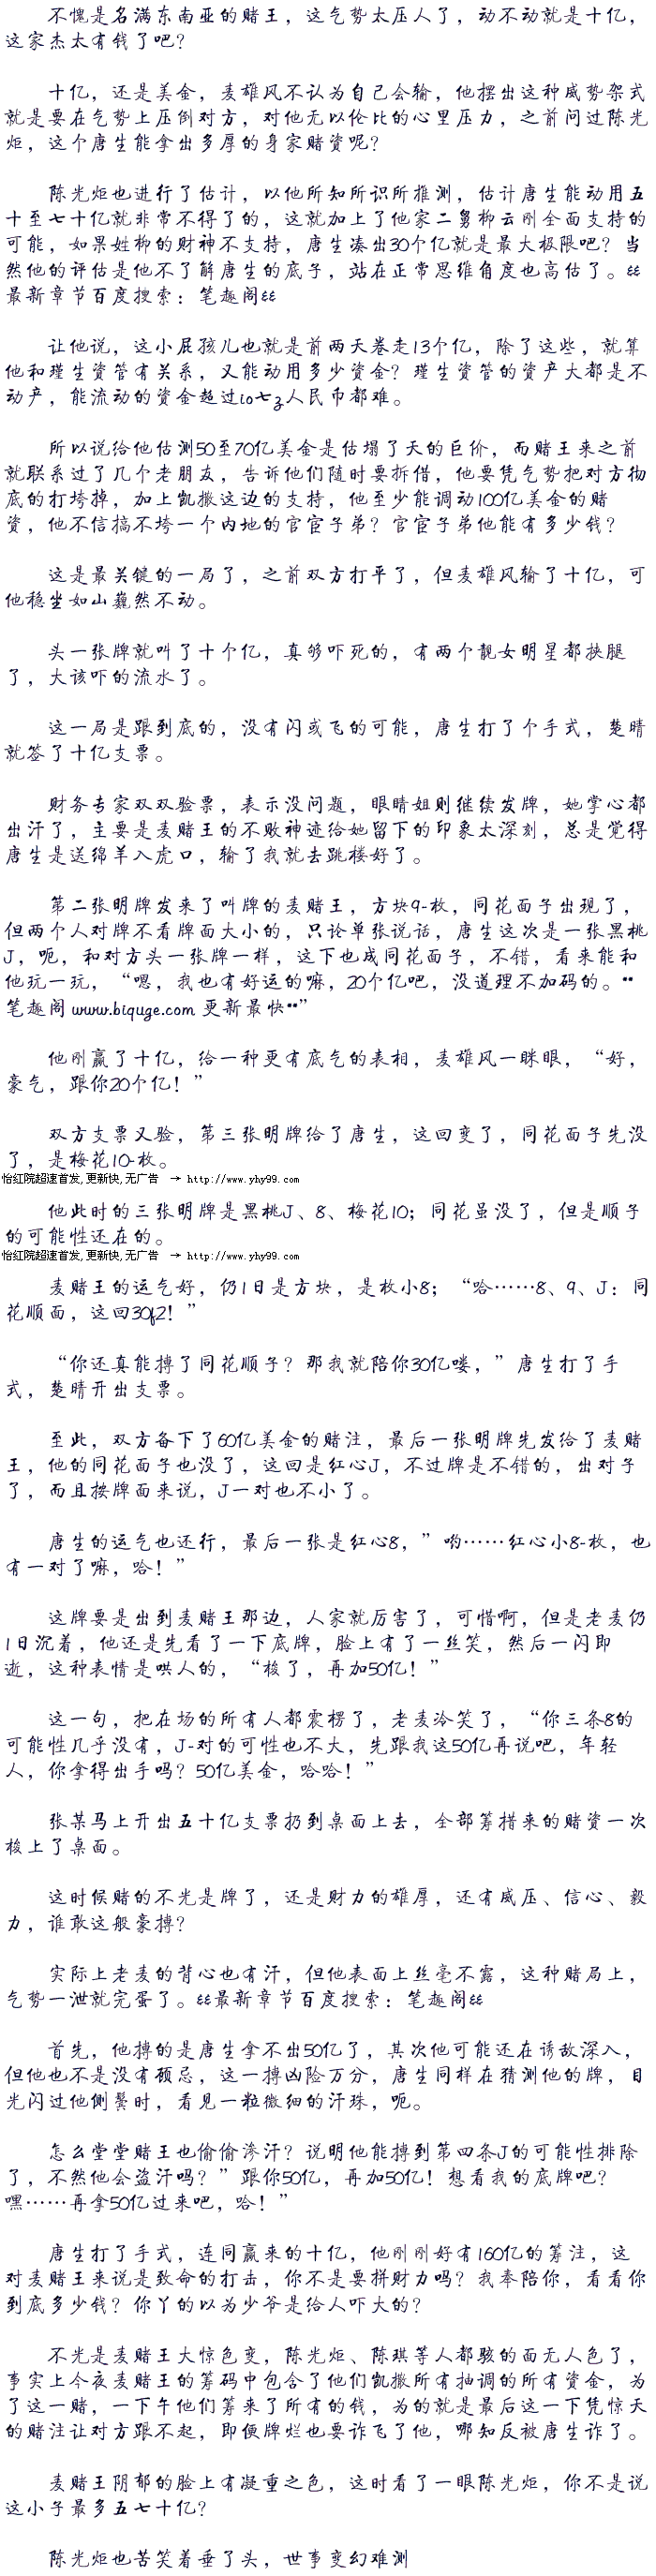 不愧是名满东南亚的赌王，这气势太压人了，动不动就是十亿，
这家杰太有钱了吧？
十亿，还是美金，麦雄风不认为自己会输，他摆出这种威势架式
就是要在气势上压倒对方，对他无以伦比的心里压力，之前问过陈光
炬，这个唐生能拿出多厚的身家赌资呢？
陈光炬也进行了估计，以他所知所识所推测，估计唐生能动用五
十至七十亿就非常不得了的，这就加上了他家二舅柳云刚全面支持的
可能，如果姓柳的财神不支持，唐生凑出30个亿就是最大极限吧？当
然他的评估是他不了解唐生的底子，站在正常思维角度也高估了。
最新章节百度搜索：笔趣阁
让他说，这小屁孩儿也就是前两天卷走13个亿，除了这些，就算
他和瑾生资管有关系，又能动用多少资金？瑾生资管的资产大都是不
动产，能流动的资金超过io七z人民币都难。
所以说给他估测50至70亿美金是估塌了天的巨价，而赌王来之前
就联系过了几个老朋友，告诉他们随时要拆借，他要凭气势把对方彻
底的打垮掉，加上凯撒这边的支持，他至少能调动100亿美金的赌
资，他不信搞不垮一个内地的官宦子弟？官宦子弟他能有多少钱？
这是最关键的一局了，之前双方打平了，但麦雄风输了十亿，可
他稳坐如山巍然不动。
头一张牌就叫了十个亿，真够吓死的，有两个靓女明星都挟腿
了，大该吓的流水了。
这一局是跟到底的，没有闪或飞的可能，唐生打了个手式，楚晴
就签了十亿支票。
财务专家双双验票，表示没问题，眼睛姐则继续发牌，她掌心都
出汗了，主要是麦赌王的不败神迹给她留下的印象太深刻，总是觉得
唐生是送绵羊入虎口，输了我就去跳楼好了。
第二张明牌发来了叫牌的麦赌王，方块9-枚，同花面子出现了，
但两个人对牌不看牌面大小的，只论单张说话，唐生这次是一张黑桃
J，呃，和对方头一张牌一样，这下也成同花面子，不错，看来能和
他玩一玩，“嗯，我也有好运的嘛，20个亿吧，没道理不加码的。
笔趣阁 www.biquge.com 更新最快”
他刚赢了十亿，给一种更有底气的表相，麦雄风一眯眼，“好，
豪气，跟你20个亿！”
双方支票又验，第三张明牌给了唐生，这回变了，同花面子先没
了，是梅花10-枚。
怡红院超速首发,更新快,无广告 → http://www.yhy99.com
他此时的三张明牌是黑桃J、8、梅花10；同花虽没了，但是顺子
的可能性还在的。
怡红院超速首发,更新快,无广告 → http://www.yhy99.com
麦赌王的运气好，仍1日是方块，是枚小8；“哈……8、9、J：同
花顺面，这回30f2！”
“你还真能搏了同花顺子？那我就陪你30亿喽，”唐生打了手
式，楚晴开出支票。
至此，双方备下了60亿美金的赌注，最后一张明牌先发给了麦赌
王，他的同花面子也没了，这回是红心J，不过牌是不错的，出对子
了，而且按牌面来说，J一对也不小了。
唐生的运气也还行，最后一张是红心8，”哟……红心小8-枚，也
有一对了嘛，哈！”
这牌要是出到麦赌王那边，人家就厉害了，可惜啊，但是老麦仍
1日沉着，他还是先看了一下底牌，脸上有了一丝笑，然后一闪即
逝，这种表情是哄人的，“梭了，再加50亿！”
这一句，把在场的所有人都震楞了，老麦冷笑了，“你三条8的
可能性几乎没有，J-对的可性也不大，先跟我这50亿再说吧，年轻
人，你拿得出手吗？50亿美金，哈哈！”
张某马上开出五十亿支票扔到桌面上去，全部筹措来的赌资一次
梭上了桌面。
这时候赌的不光是牌了，还是财力的雄厚，还有威压、信心、毅
力，谁敢这般豪搏？
实际上老麦的背心也有汗，但他表面上丝毫不露，这种赌局上，
气势一泄就完蛋了。最新章节百度搜索：笔趣阁
首先，他搏的是唐生拿不出50亿了，其次他可能还在诱敌深入，
但他也不是没有顾忌，这一搏凶险万分，唐生同样在猜测他的牌，目
光闪过他侧鬓时，看见一粒微细的汗珠，呃。
怎么堂堂赌王也偷偷渗汗？说明他能搏到第四条J的可能性排除
了，不然他会盗汗吗？”跟你50亿，再加50亿！想看我的底牌吧？
嘿……再拿50亿过来吧，哈！”
唐生打了手式，连同赢来的十亿，他刚刚好有160亿的筹注，这
对麦赌王来说是致命的打击，你不是要拼财力吗？我奉陪你，看看你
到底多少钱？你丫的以为少爷是给人吓大的？
不光是麦赌王大惊色变，陈光炬、陈琪等人都骇的面无人色了，
事实上今夜麦赌王的筹码中包含了他们凯撒所有抽调的所有资金，为
了这一赌，一下午他们筹来了所有的钱，为的就是最后这一下凭惊天
的赌注让对方跟不起，即便牌烂也要诈飞了他，哪知反被唐生诈了。
麦赌王阴郁的脸上有凝重之色，这时看了一眼陈光炬，你不是说
这小子最多五七十亿？
陈光炬也苦笑着垂了头，世事变幻难测